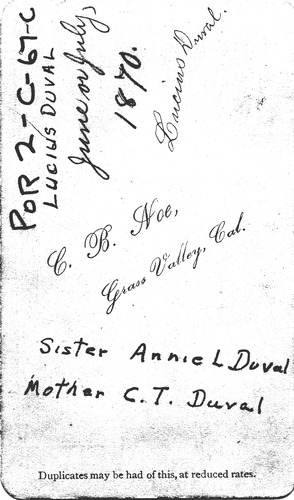 POR 2-C-67-C
LUCIUS DUVAL
June or July,
1870.
Lucius Duval.
C. B. Noe,
Grass Valley, Cal.
Sister Annie L Duval
Mother C. T. Duval
Duplicates may be had of this, at reduced rates.